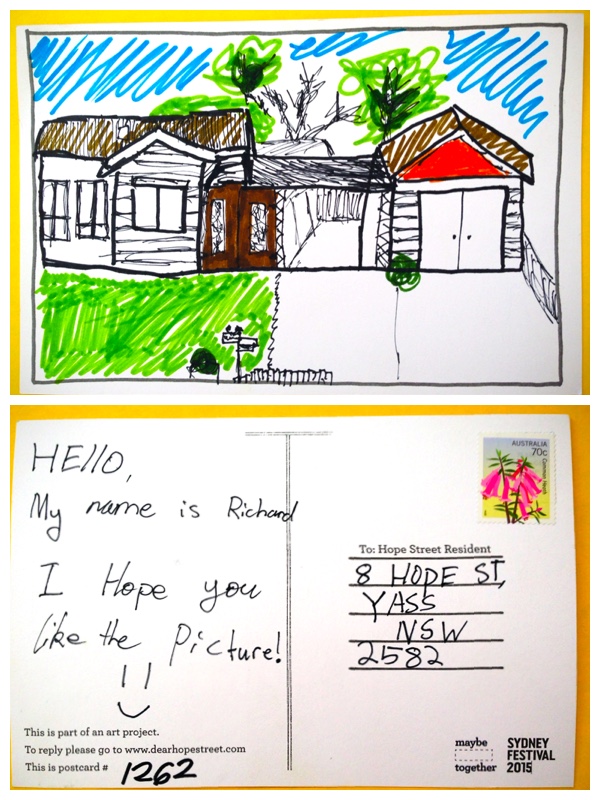 HEllO,
My name is Richard
I Hope you
like the Picture!
This is part of an art project.
To reply please go to www.dearhopestreet.com
This is postcard # 1262
AUSTRALIA
70c
Common Heath
To: Hope Street Resident
8 HOPE ST,
YASS
NSW
2582
maybe
together
SYDNEY
FESTIVAL
2015